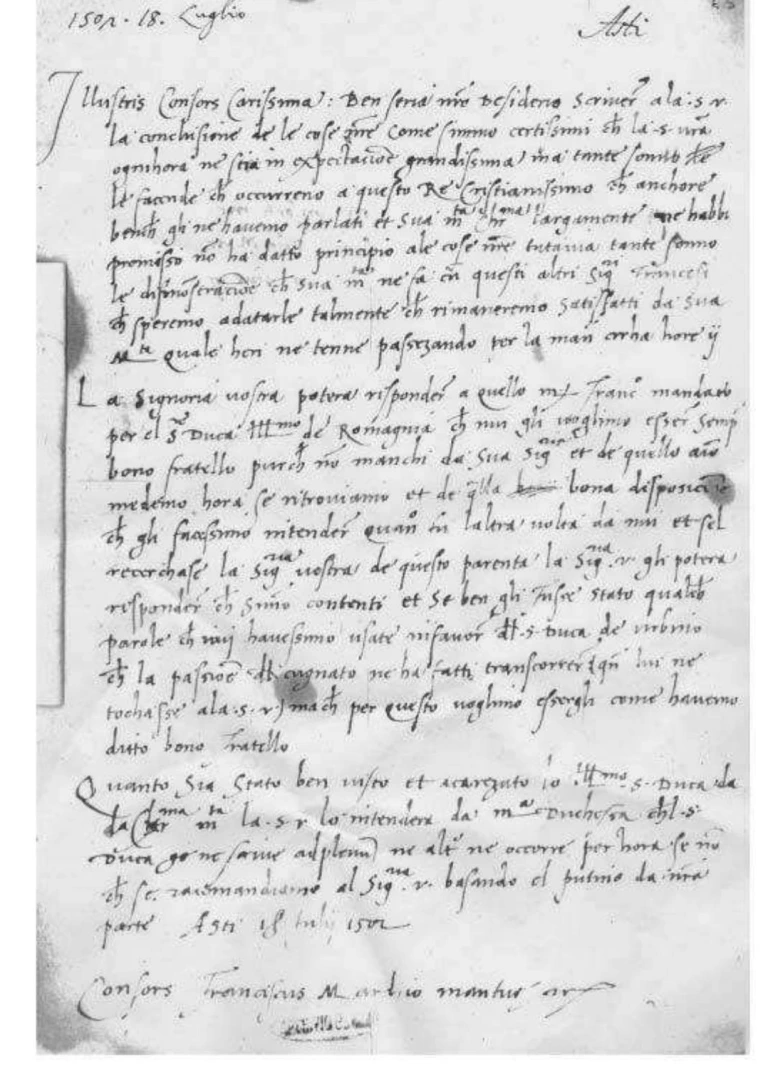 1502. 18. Luglio
Asti
Illustris Consors Carissima: Ben seria nr̃o desiderio scriver ala .s. v.
la conclusione de le cose nr̃e come simmo certissimi ch̃ la .s. vr̃a
ognihora ne stia in expectacione grandissima ma tante sonno
le facende ch̃ occurreno a questo Re Cristianissimo ch̃ anchore
bench̃ gli ne havemo parlati et sua m.ta chr.ma largamente ne habbi
promisso nõ ha datto principio ale cose nr̃e tutavia tante sonno
le dimonstracione ch̃ sua m.ta ne fa cũ questi altri Sig.ri Francesi
ch̃ speremo adatarle talmente ch̃ rimaneremo satisfatti da sua
M.ta quale heri ne tenne passezando per la man circha hore ij
La Signoria vostra potera risponder a quello m. Franc.o mandato
per el S. Duca Ill.mo de Romagnia ch̃ nui gli voglimo esser semp
bono fratello purch̃ nõ manchi da sua Sig.ria et de quello aĩo
medemo hora se ritroviamo et de q̃lla bona disposicione
ch̃ gli facessimo intender quan̄o fu laltra volta da nui et sel
recerchase la Sig.ria vostra de questo parenta la Sig.ria .v. gli potera
risponder ch̃ simo contenti et se ben gli fusse stato qualch̃
parole ch̃ havessimo usate in favor dl .s. Duca de urbino
ch̃ la passione dl cugnato ne ha fatti transcorrer lui ne
tochasse ala .s. v.) mach̃ per questo voglimo essergli come havemo
ditto bono fratello
Quanto sia stato ben visto et acarezato lo Ill.mo .s. Duca da
da Chr.ma m.ta la .s. v. lo intendera da m.a Duchessa chl .s.
Duca ge ne scrive ad plenũ ne alt.o ne occorre per hora se nõ
ch̃ se racomandiamo al Sig.ria .v. basando el putino da nr̃a
parte Asti 18 Julij 1502
Consors Franciscus Marchio mantuę